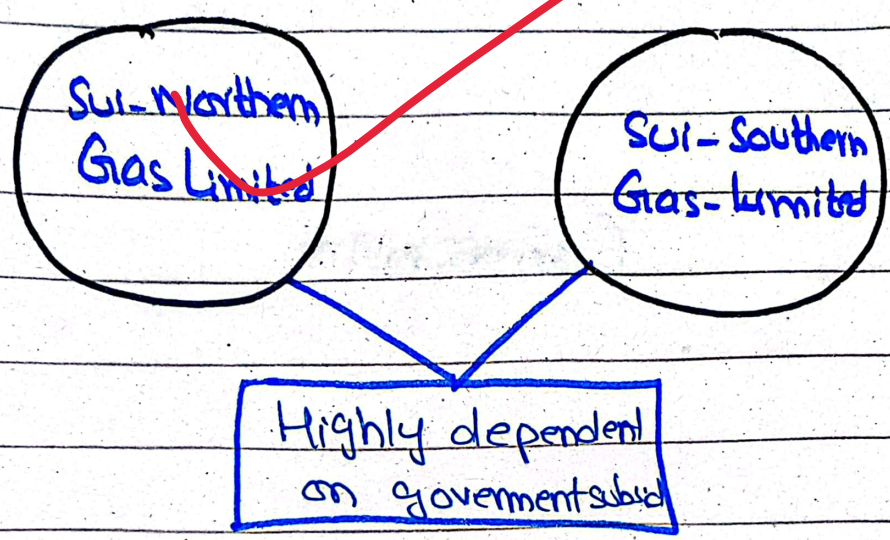 Sui-Northern
Gas Limited
Sui-Southern
Gas-Limited
Highly dependent
on govermentsubsid